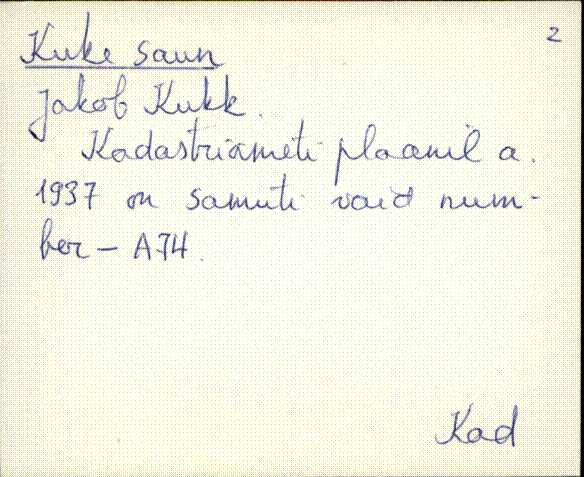 2
Kuke saun
Jakob Kukk.
Kadastriameti plaanil a.
1937 on samuti vaid num-
ber - A74.
Kad